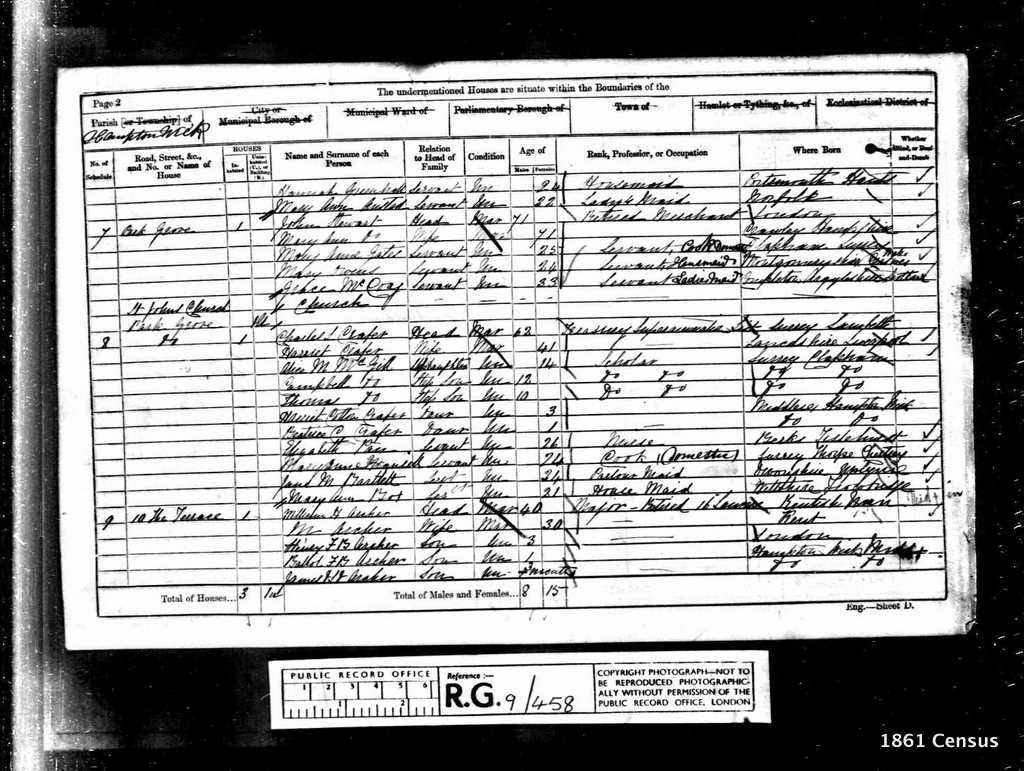 The undermentioned Houses are situate within the Boundaries of the
Page 2
Parish [or Township] of
Hampton Wick
City or Municipal Borough of
Municipal Ward of
Parliamentary Borough of
Town of
Hamlet or Tything, &c., of
Ecclesiastical District of
No. of Schedule
Road, Street, &c., and No. or Name of House
HOUSES
Inhabited
Uninhabited (U.), or Building (B.)
Name and Surname of each Person
Relation to Head of Family
Condition
Age of
Males
Females
Rank, Profession, or Occupation
Where Born
Whether Blind, or Deaf-and-Dumb
Servant Un 24 Housemaid Portsmouth Hants
Mary Ann Servant Un 22 Ladys Maid Norfolk
7 Park Grove 1 John Stewart Head Mar 71 Retired Merchant London
Mary Ann Do Wife Mar 71 Crawley Hampshire
Mary Anne Gates Servant Un 25 Servant, Cook Clapham Surrey
Mary Servant Un 24 Servant Housemaid Montgomeryshire
Grace McCoag Servant Un 33 Servant Ladies Maid Argyleshire Scotland
St Johns Church Church
Park Grove
8 Do 1 Charles L Craper Head Mar 62 Treasury Superannuated Surrey Lambeth
Harriet Craper Wife Mar 41 Lancashire Liverpool
Alice M McGill Un 14 Scholar Surrey Clapham
Campbell Do Step Son Un 12 Do Do Do Do
Thomas Do Step Son Un 10 Do Do Do Do
Harriet Craper Daur Un 3 Middlesex Hampton Wick
Beatrice C Craper Daur Un 1 Do Do
Elizabeth Servant Un 26 Nurse Berks
Mary Anne Servant Un 24 Cook (Domestic) Surrey Thorpe
Jane M Bartlett Un 24 Parlour Maid Devonshire
Mary Ann Box Un 21 House Maid Wiltshire
9 10 The Terrace 1 William H Archer Head Mar 40 Major - Retired 16 Lancers Kentish Town
M Archer Wife Mar 30 Kent
Henry F B Archer Son Un 3 London
F B Archer Son Un 1 Hampton Wick Middx
James Archer Son Un 3 months Do Do
Total of Houses... 3
Total of Males and Females... 8 15
Eng.—Sheet D.
PUBLIC RECORD OFFICE
1 2 3 4 5 6
1 2
Reference :—
R.G. 9/458
COPYRIGHT PHOTOGRAPH—NOT TO
BE REPRODUCED PHOTOGRAPHIC-
ALLY WITHOUT PERMISSION OF THE
PUBLIC RECORD OFFICE, LONDON
1861 Census